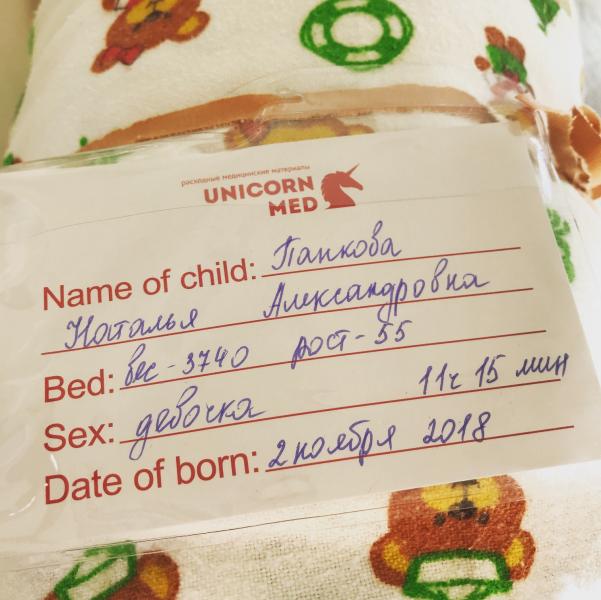 расходные медицинские материалы
UNICORN
MED
Name of child: Панкова
Наталья Александровна
Bed: вес - 3740 рост - 55
Sex: девочка 11ч 15 мин
Date of born: 2 ноября 2018